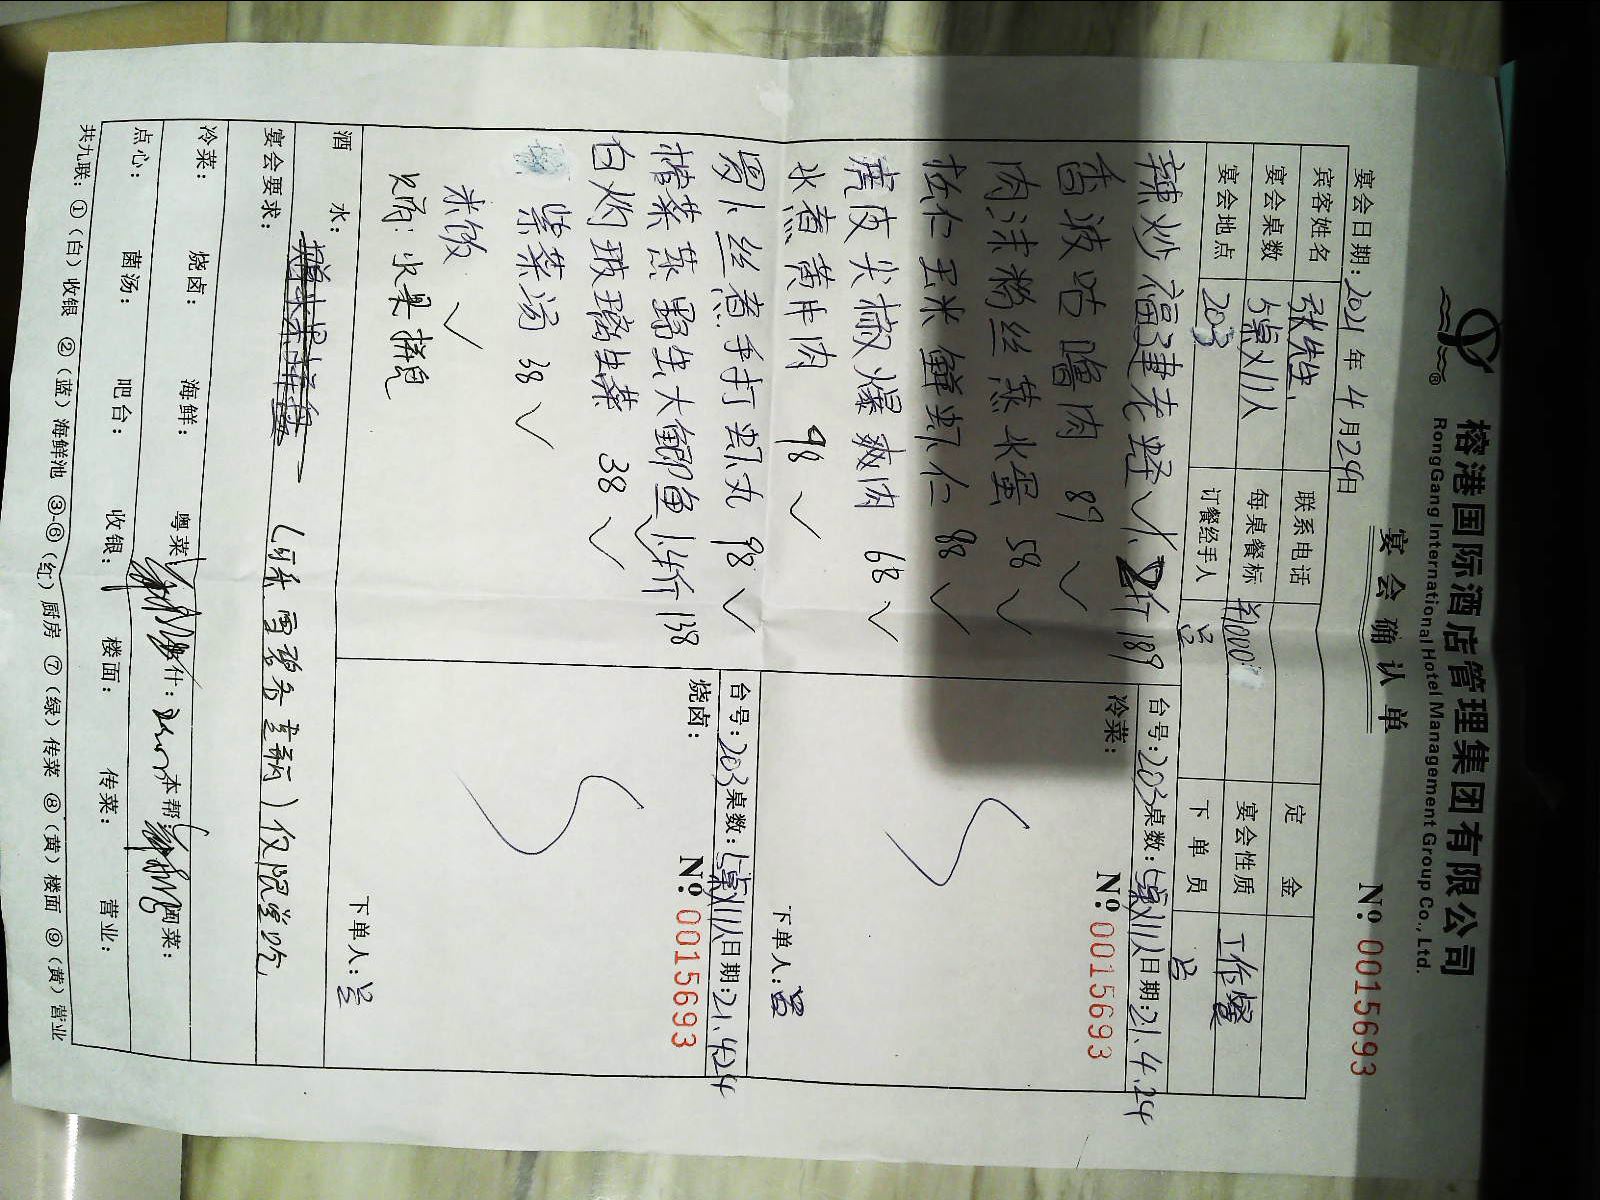 榕港国际酒店管理集团有限公司
RongGang International Hotel Management Group Co., Ltd.
宴会确认单
宴会日期:2021年4月24日
№:0015693
宾客姓名 张先生 联系电话 定金
宴会桌数 1桌 人 每桌餐标 ¥1000 宴会性质 工作餐
宴会地点 203 订餐经手人 吕 下单员 吕
辣炒福建老蛏 2斤 189
香波咕噜肉 89
肉沫粉丝蒸水蛋 58
松仁玉米鲜虾仁 88
虎皮尖椒爆爽肉 68
水煮黄牛肉 98
萝卜丝煮手打虾丸 98
榨菜蒸野生大鲫鱼 1条 斤 138
白灼玻璃生菜 38
紫菜汤 38
米饭
送:水果拼盘
台号:203 桌数:1桌 人 日期:21.4.24
冷菜:
№:0015693
下单人:吕
台号:203 桌数:1桌 人 日期:21.4.24
烧卤:
№:0015693
下单人:吕
酒水:
宴会要求:
(送雪碧 壹瓶)仅限堂吃
冷菜: 烧卤: 海鲜: 粤菜: 什: 本帮: 闽菜:
点心: 菌汤: 吧台: 收银: 楼面: 传菜: 营业:
共九联:①(白)收银 ②(蓝)海鲜池 ③-⑥(红)厨房 ⑦(绿)传菜 ⑧(黄)楼面 ⑨(黄)营业